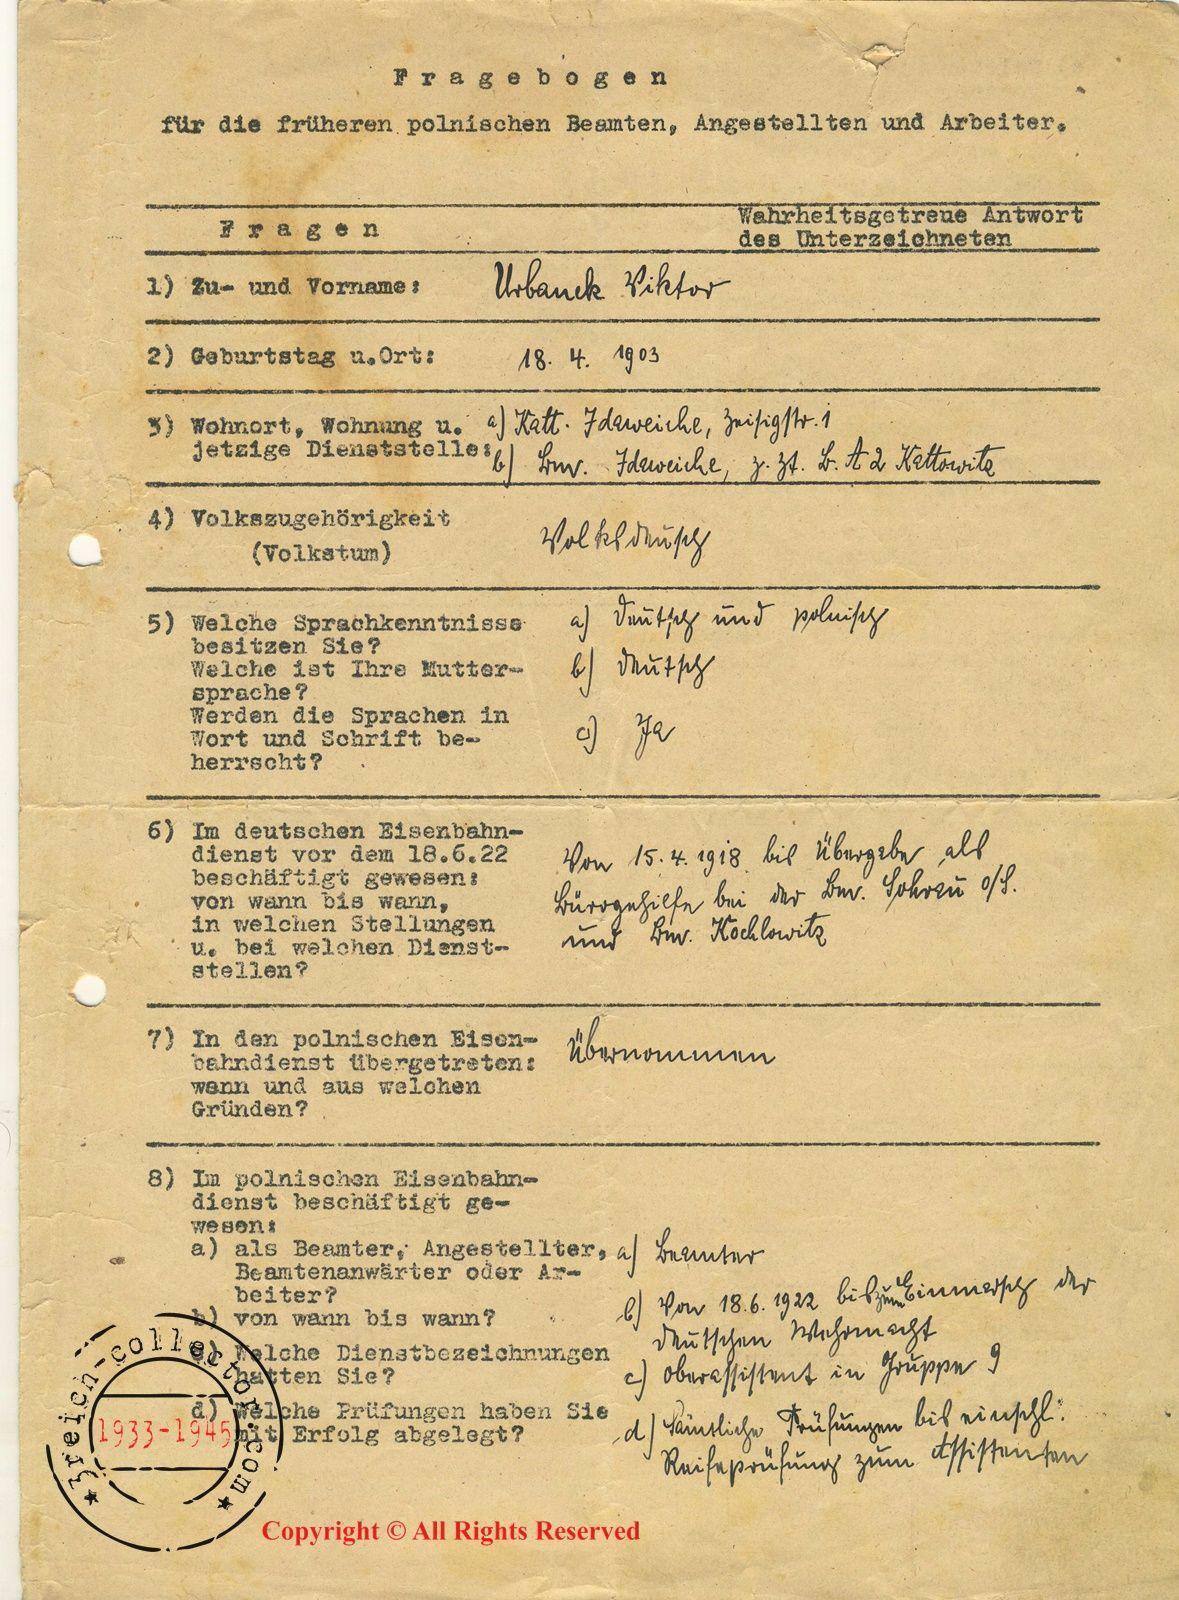 Fragebogen
für die früheren polnischen Beamten, Angestellten und Arbeiter.
Fragen
Wahrheitsgetreue Antwort
des Unterzeichneten
1) Zu- und Vorname: Urbanek Viktor
2) Geburtstag u.Ort: 18. 4. 1903
3) Wohnort, Wohnung u. a) Katt. Idaweiche, Zeisigstr. 1
jetzige Dienststelle: b) Bw. Idaweiche, z. Zt. B. A 2 Kattowitz
4) Volkszugehörigkeit
(Volkstum) Volksdeutsch
5) Welche Sprachkenntnisse a) deutsch und polnisch
besitzen Sie?
Welche ist Ihre Mutter- b) deutsch
sprache?
Werden die Sprachen in
Wort und Schrift be- c) Ja
herrscht?
6) Im deutschen Eisenbahn-
dienst vor dem 18.6.22 Von 15. 4. 1918 bis Übergabe als
beschäftigt gewesen:
von wann bis wann, Bürogehilfe bei der Bw. Sohrau O/S.
in welchen Stellungen und Bw. Kochlowitz
u. bei welchen Dienst-
stellen?
7) In den polnischen Eisen- Übernommen
bahndienst übergetreten:
wann und aus welchen
Gründen?
8) Im polnischen Eisenbahn-
dienst beschäftigt ge-
wesen:
a) als Beamter, Angestellter, a) Beamter
Beamtenanwärter oder Ar-
beiter?
b) von wann bis wann? b) Von 18.6. 1922 bis zum Einmarsch der
deutschen Wehrmacht
c) Welche Dienstbezeichnungen
hatten Sie? c) Oberassistent in Gruppe 9
d) Welche Prüfungen haben Sie
mit Erfolg abgelegt? d) Sämtliche Prüfungen bis einschl.
Reifeprüfung zum Assistenten
3reich-collector.com
1933-1945
Copyright © All Rights Reserved